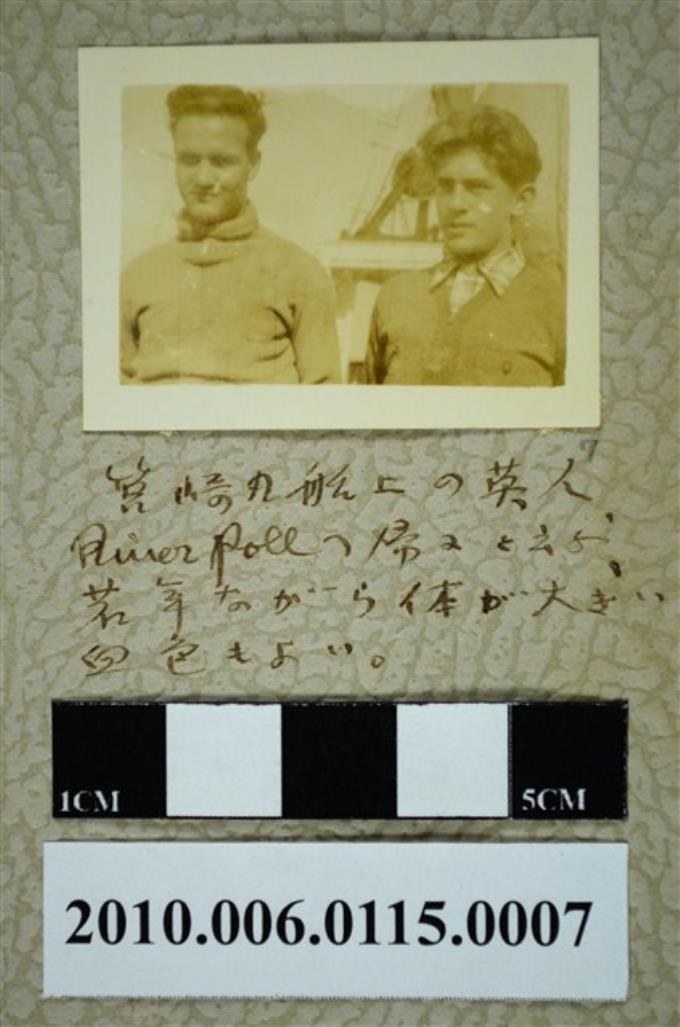 7
宮崎丸船上の英人、
River Pollへ帰ると云ふ、
若年ながら体が大きい
血色もよい。
1CM
5CM
2010.006.0115.0007